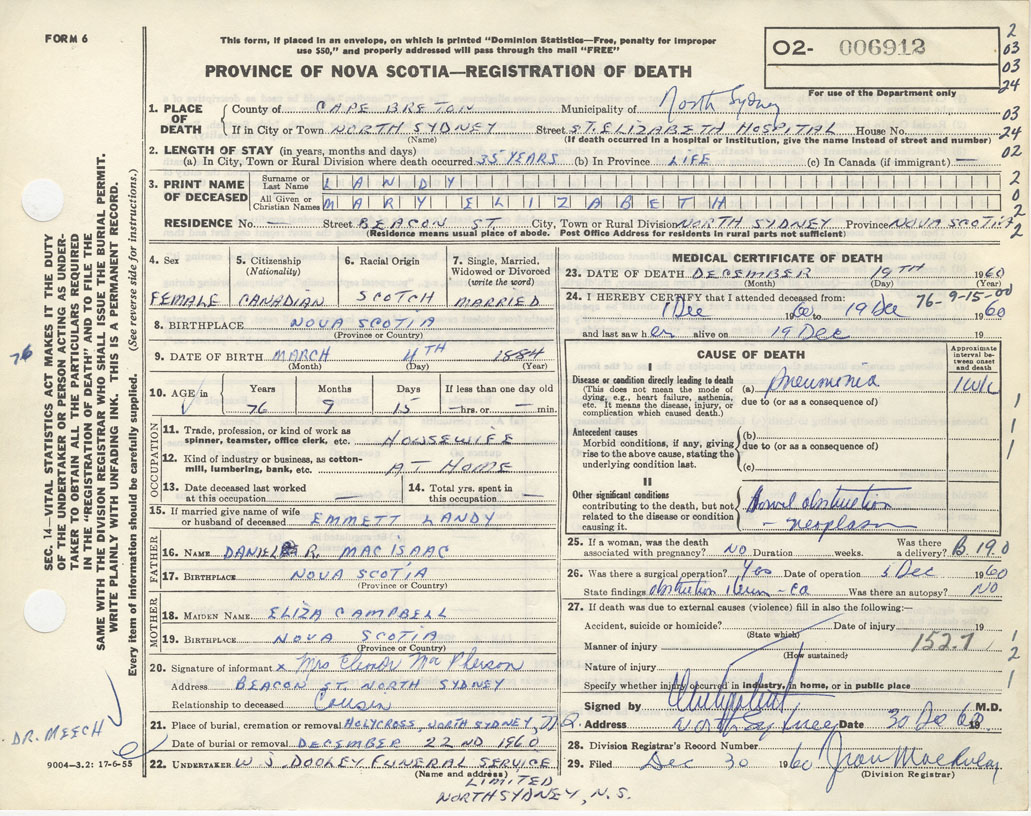 FORM 6
This form, if placed in an envelope, on which is printed "Dominion Statistics—Free, penalty for improper
use $50," and properly addressed will pass through the mail "FREE"
O2- 006912
PROVINCE OF NOVA SCOTIA—REGISTRATION OF DEATH
For use of the Department only
2
03
03
24
03
24
02
2
0
2
2
1. PLACE OF DEATH
County of CAPE BRETON Municipality of North Sydney
If in City or Town NORTH SYDNEY Street ST. ELIZABETH HOSPITAL House No.
(Name) (If death occurred in a hospital or institution, give the name instead of street and number)
2. LENGTH OF STAY (in years, months and days)
(a) In City, Town or Rural Division where death occurred 35 YEARS (b) In Province LIFE (c) In Canada (if immigrant) —
3. PRINT NAME OF DECEASED
Surname or Last Name LANDY
All Given or Christian Names MARY ELIZABETH
RESIDENCE No. — Street BEACON ST. City, Town or Rural Division NORTH SYDNEY Province NOVA SCOTIA
(Residence means usual place of abode. Post Office Address for residents in rural parts not sufficient)
4. Sex FEMALE
5. Citizenship (Nationality) CANADIAN
6. Racial Origin SCOTCH
7. Single, Married, Widowed or Divorced (write the word) MARRIED
8. BIRTHPLACE NOVA SCOTIA
(Province or Country)
9. DATE OF BIRTH MARCH 4TH 1884
(Month) (Day) (Year)
10. AGE in
Years Months Days If less than one day old
76 9 15 —hrs. or — min.
OCCUPATION
11. Trade, profession, or kind of work as spinner, teamster, office clerk, etc. HOUSEWIFE
12. Kind of industry or business, as cotton-mill, lumbering, bank, etc. AT HOME
13. Date deceased last worked at this occupation —
14. Total yrs. spent in this occupation —
15. If married give name of wife or husband of deceased EMMETT LANDY
FATHER
16. NAME DANIEL R. MACISAAC
17. BIRTHPLACE NOVA SCOTIA
(Province or Country)
MOTHER
18. MAIDEN NAME ELIZA CAMPBELL
19. BIRTHPLACE NOVA SCOTIA
(Province or Country)
20. Signature of informant x Mrs Elinor MacPherson
Address BEACON ST. NORTH SYDNEY
Relationship to deceased Cousin
21. Place of burial, cremation or removal HOLYCROSS, NORTH SYDNEY,
Date of burial or removal DECEMBER 22ND 1960
22. UNDERTAKER W S DOOLEY FUNERAL SERVICE
(Name and address) LIMITED
NORTH SYDNEY, N.S.
MEDICAL CERTIFICATE OF DEATH
23. DATE OF DEATH DECEMBER 19TH 1960
(Month) (Day) (Year)
76-9-15-00
24. I HEREBY CERTIFY that I attended deceased from:
1 Dec 1960 to 19 Dec 1960
and last saw her alive on 19 Dec 19
CAUSE OF DEATH
Approximate interval between onset and death
I
Disease or condition directly leading to death
(This does not mean the mode of dying, e.g., heart failure, asthenia, etc. It means the disease, injury, or complication which caused death.)
(a) pneumonia 1 wk
due to (or as a consequence of)
Antecedent causes
Morbid conditions, if any, giving rise to the above cause, stating the underlying condition last.
(b)
due to (or as a consequence of)
(c)
II
Other significant conditions
contributing to the death, but not related to the disease or condition causing it.
Bowel obstruction
- neoplasm
1
1
1
25. If a woman, was the death associated with pregnancy? NO Duration weeks. Was there a delivery? B. 19.0
26. Was there a surgical operation? Yes Date of operation 5 Dec 1960
State findings obstruction ileum - Ca Was there an autopsy? NO
27. If death was due to external causes (violence) fill in also the following:—
Accident, suicide or homicide? Date of injury 19
(State which)
Manner of injury 152.7
(How sustained)
Nature of injury
Specify whether injury occurred in industry, in home, or in public place
1
2
1
Signed by M.D.
Address North Sydney Date 30 Dec 60 19
28. Division Registrar's Record Number
29. Filed Dec 30 1960
(Division Registrar)
SEC. 14—VITAL STATISTICS ACT MAKES IT THE DUTY
OF THE UNDERTAKER OR PERSON ACTING AS UNDER-
TAKER TO OBTAIN ALL THE PARTICULARS REQUIRED
IN THE "REGISTRATION OF DEATH" AND TO FILE THE
SAME WITH THE DIVISION REGISTRAR WHO SHALL ISSUE THE BURIAL PERMIT.
WRITE PLAINLY WITH UNFADING INK. THIS IS A PERMANENT RECORD.
Every item of information should be carefully supplied. (See reverse side for instructions.)
76
DR. MEECH
9004—3.2: 17-6-55